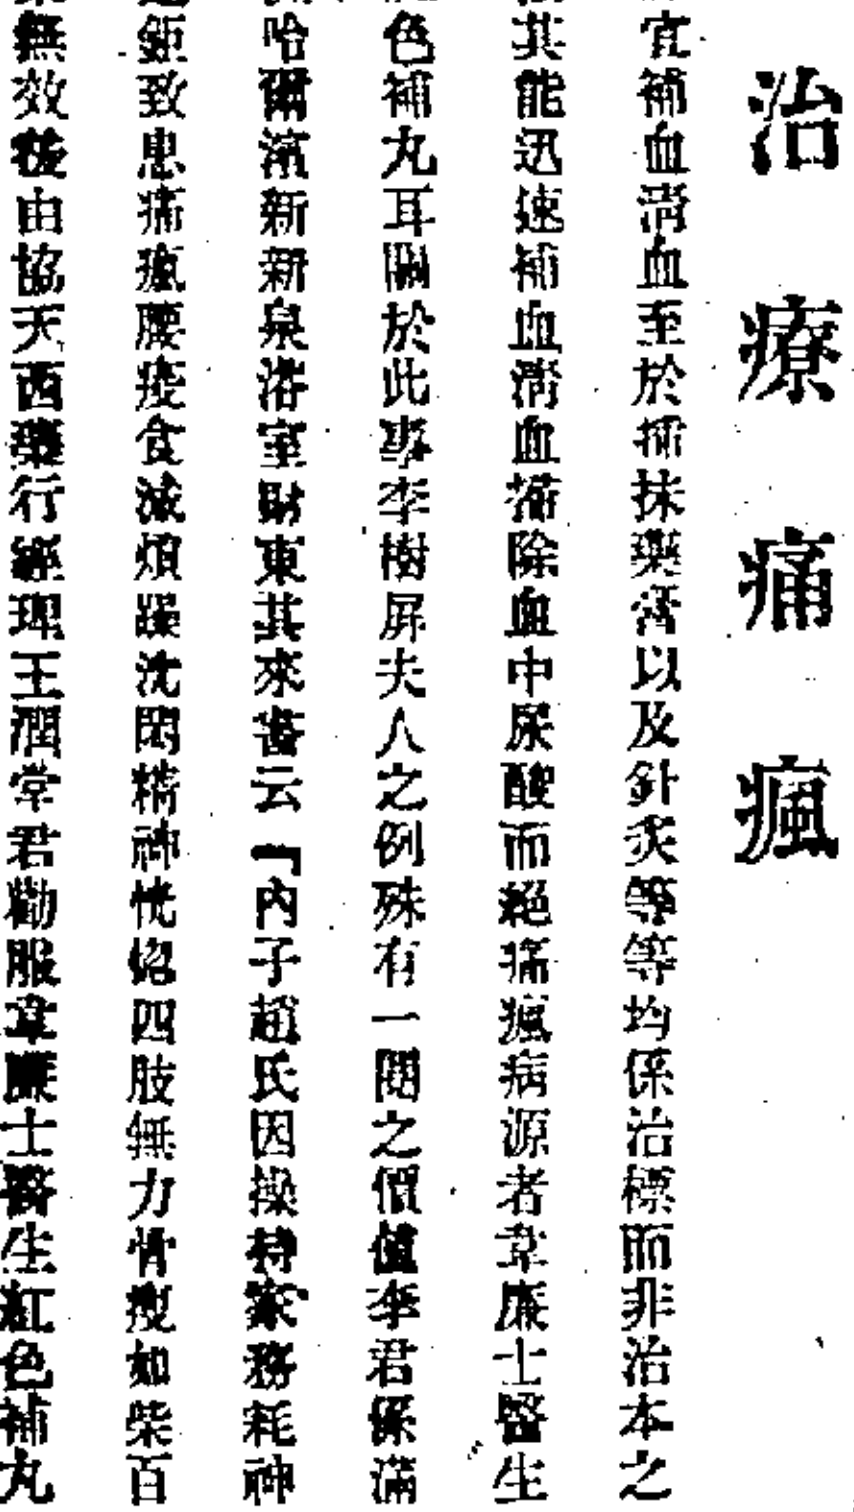 治療痛瘋
宜補血清血至於搽抹藥膏以及針炙等等均係治標而非治本之
其能迅速補血清血掃除血中尿酸而絕痛瘋病源者韋廉士醫生
色補丸耳關於此事李樹屏夫人之例殊有一閱之價值李君係滿
哈爾濱新新泉浴室財東其來書云『內子趙氏因操持家務耗神
鉅致患痛瘋腰痠食減煩躁沈悶精神恍惚四肢無力骨瘦如柴百
無效後由協天西藥行經理王潤棠君勸服韋廉士醫生紅色補丸